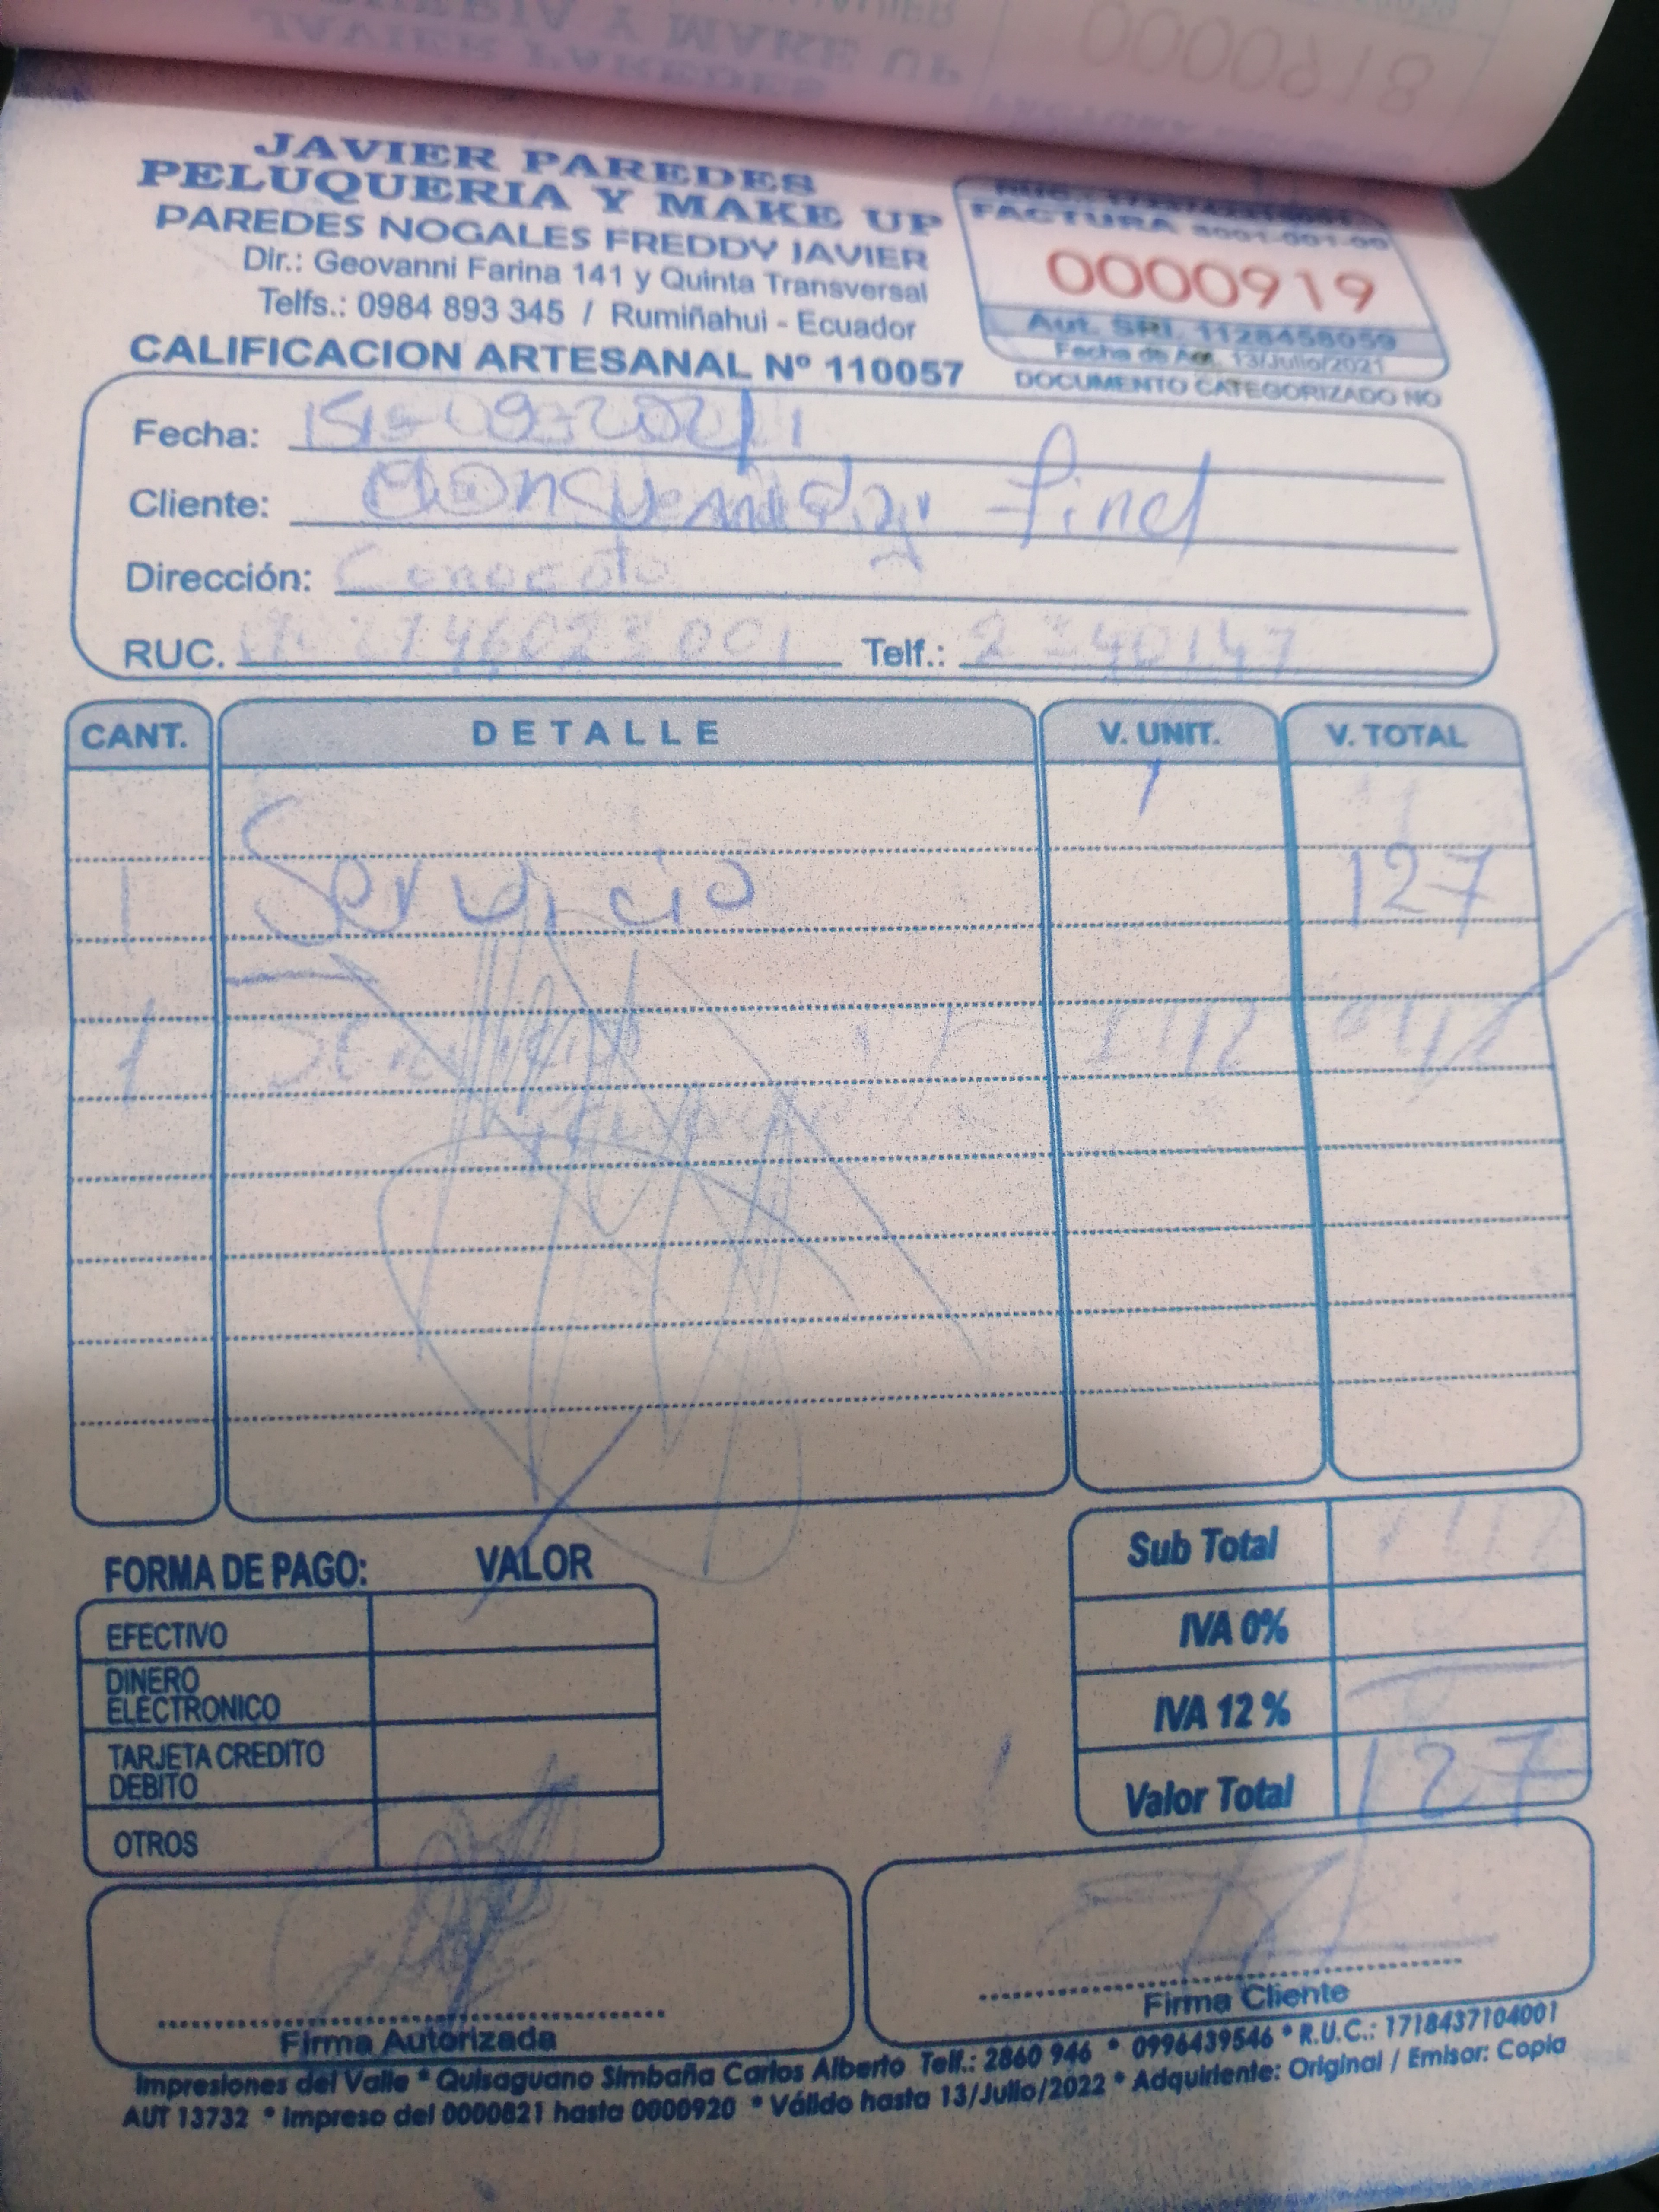 JAVIER PAREDES
PELUQUERIA Y MAKE UP
0000918
JAVIER PAREDES
PELUQUERIA Y MAKE UP
PAREDES NOGALES FREDDY JAVIER
Dir.: Geovanni Farina 141 y Quinta Transversal
Telfs.: 0984 893 345 / Rumiñahui - Ecuador
CALIFICACION ARTESANAL Nº 110057
FACTURA
0000919
Aut. SRI. 1128458059
Fecha de Aut. 13/Julio/2021
DOCUMENTO CATEGORIZADO NO
Fecha:
Cliente: Pinel
Dirección: Conocoto
RUC. Telf.: 2340147
CANT. DETALLE V. UNIT. V. TOTAL
1 Servicio 127
1
FORMA DE PAGO: VALOR
EFECTIVO
DINERO ELECTRONICO
TARJETA CREDITO DEBITO
OTROS
Sub Total
IVA 0%
IVA 12 %
Valor Total 127
Firma Autorizada
Firma Cliente
Impresiones del Valle * Quisaguano Simbaña Carlos Alberto Telf.: 2860 946 * 0996439546 * R.U.C.: 1718437104001
AUT 13732 * Impreso del 0000821 hasta 0000920 * Válido hasta 13/Julio/2022 * Adquiriente: Original / Emisor: Copia